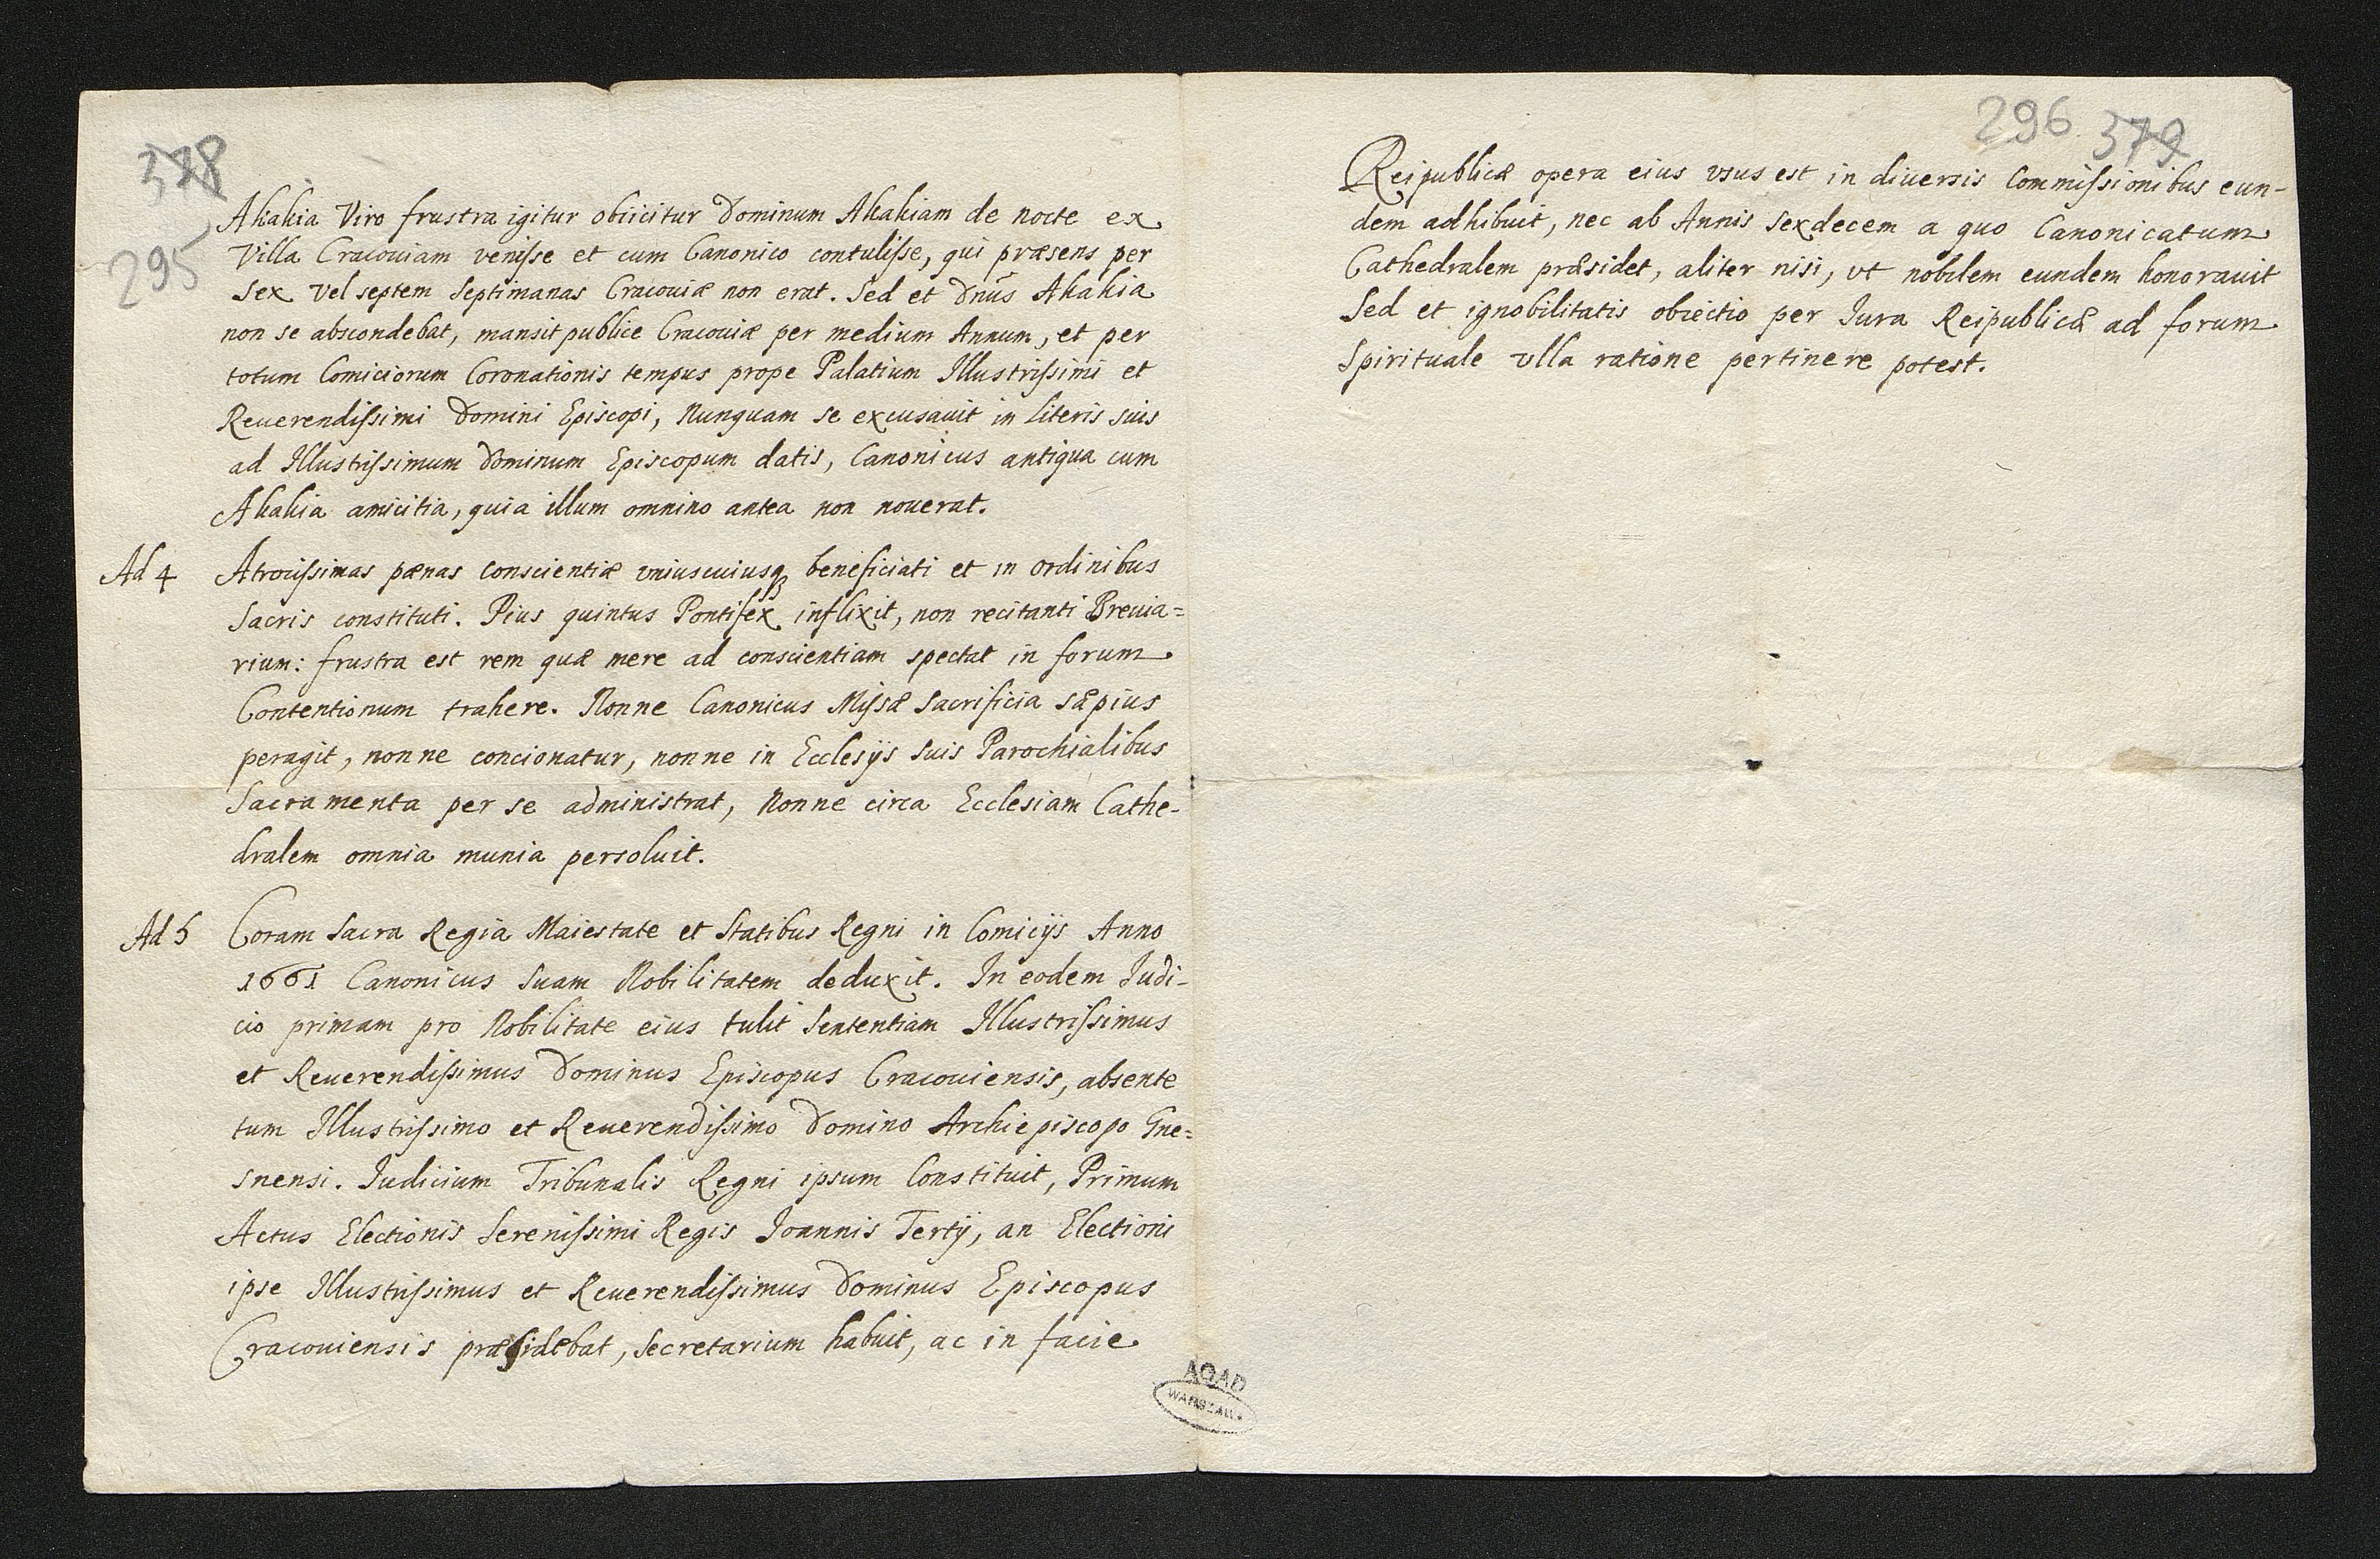 378
295
Akakia Viro frustra igitur obiicitur Dominum Akakiam de nocte ex
Villa Cracouiam venisse et cum Canonico contulisse, qui præsens per
Sex vel septem Septimanas Cracouiæ non erat. Sed et Dnūs Akakia
non se abscondebat, mansit publice Cracouiæ per medium Annum, et per
totum Comiciorum Coronationis tempus prope Palatium Illustrissimi et
Reuerendissimi Domini Episcopi, Nunquam se excusauit in literis suis
ad Illustrissimum Dominum Episcopum datis, Canonicus antiqua cum
Akakia amicitia, quia illum omnino antea non nouerat.
Ad 4 Atrocissimas pænas conscientiæ vniuscuiusq beneficiati et in ordinibus
Sacris constituti. Pius quintus Pontifex inflixit, non recitanti Breuia=
rium: frustra est rem quæ mere ad conscientiam spectat in forum
Contentionum trahere. Nonne Canonicus Missæ Sacrificia sæpius
peragit, nonne concionatur, nonne in Ecclesijs suis Parochialibus
Sacramenta per se administrat, Nonne circa Ecclesiam Cathe-
dralem omnia munia persoluit.
Ad 5 Coram Sacra Regia Maiestate et Statibus Regni in Comicijs Anno
1661 Canonicus Suam Nobilitatem deduxit. In eodem Judi-
cio primam pro Nobilitate eius tulit Sententiam Illustrissimus
et Reuerendissimus Dominus Episcopus Cracouiensis, absente
tum Illustrissimo et Reuerendissimo Domino Archiepiscopo Gne=
snensi. Judicium Tribunalis Regni ipsum Constituit, Primum
Actus Electionis Serenissimi Regis Joannis Tertij, an Electioni
ipse Illustrissimus et Reuerendissimus Dominus Episcopus
Cracouiensis præsidebat, Secretarium habuit, ac in facie
AGAD
WARSZAWA
296 379
Reipublicæ opera eius vsus est in diuersis Commissionibus eun-
dem adhibuit, nec ab Annis Sexdecem a quo Canonicatum
Cathedralem præsidet, aliter nisi, vt nobilem eundem honorauit
Sed et ignobilitatis obiectio per Jura Reipublicæ ad forum
Spirituale vlla ratione pertinere potest.